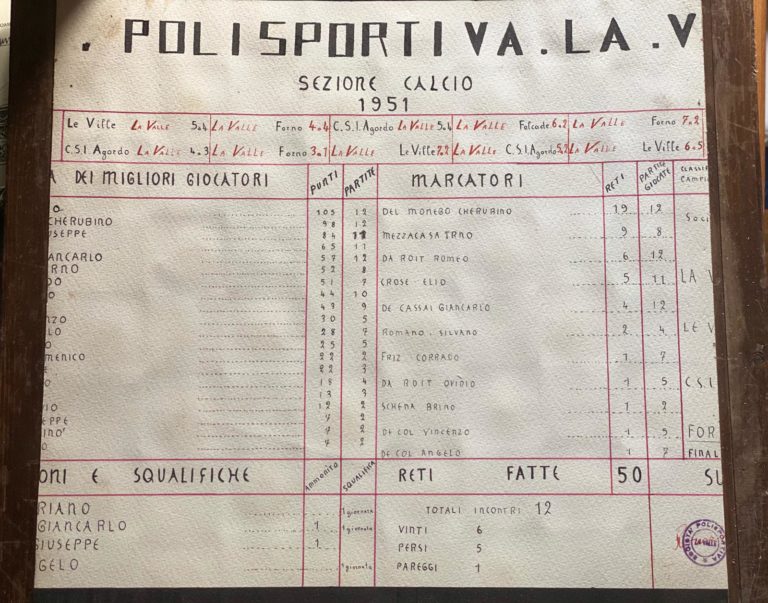 . POLISPORTIVA . LA . V
SEZIONE CALCIO
1951
Le Ville LA VALLE 5.4 LA VALLE Forno 4.4 C.S.I. Agordo LA VALLE 5.4 LA VALLE Falcade 6.2 LA VALLE Forno 7.2
C.S.I. Agordo LA VALLE 4.3 LA VALLE Forno 3.1 LA VALLE Le Ville 7.2 LA VALLE C.S.I. Agordo 5.2 LA VALLE Le Ville 6.5
A DEI MIGLIORI GIOCATORI PUNTI PARTITE MARCATORI RETI PARTITE GIOCATE CLASSIF CAMPI
O 105 12 DEL MONEGO CHERUBINO 19 12
CHERUBINO 98 12 Soci
USEPPE 84 11 MEZZACASA TRNO 9 8
65 11
IANCARLO 57 12 DA ROIT ROMEO 6 12
ERNO 52 8
DO 51 7 CROSE ELIO 5 11 LA V
O 44 10
49 9 DE CASSAI GIANCARLO 4 12
NZO 30 5
LO 28 7 ROMANO SILVANO 2 4 LE V
25 5
MENICO 22 2 FRIZ CORRADO 1 7
E 22 3
18 4 DA ROIT OVIDIO 1 5 C.S.I
13 3
IO 12 2 SCHENA BRINO 1 2
EPPE 7 2
INO' 7 2 DE COL VINCENZO 1 5 FOR
O 7 2
DE COL ANGELO 1 7 FINAL
ONI E SQUALIFICHE AMMONITO SQUALIFICA RETI FATTE 50 SU
RIANO 1 giornata TOTALI INCONTRI 12
GIANCARLO 1 1 giornata VINTI 6
GIUSEPPE 1 PERSI 5
GELO 1 giornata PAREGGI 1
SOCIETÀ POLISPORTIVA
LA VALLE